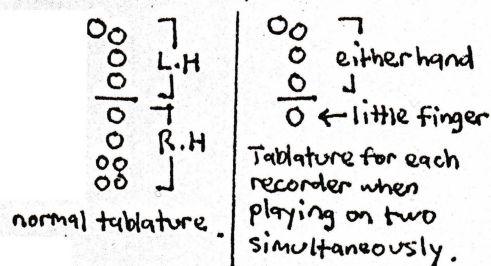 L.H
R.H
normal tablature.
either hand
← little finger
Tablature for each
recorder when
playing on two
simultaneously.